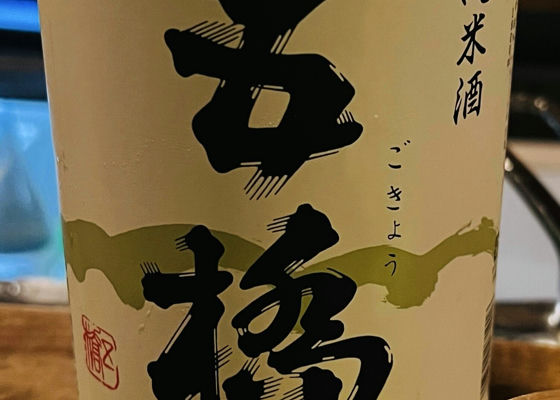 米酒
五橋
ごきょう
五橋